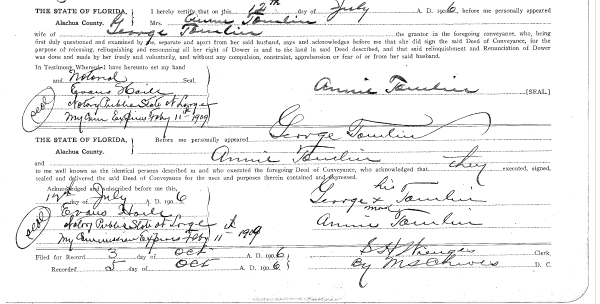 THE STATE OF FLORIDA, } I hereby certify that on this 12th day of July A. D. 1906, before me personally appeared
Alachua County. } Mrs. Annie Tomlin
wife of George Tomlin the grantor in the foregoing conveyance, who, being
first duly questioned and examined by me, separate and apart from her said husband, says and acknowledges before me that she did sign the said Deed of Conveyance, for the
purpose of releasing, relinquishing and renouncing all her right of Dower in and to the land in said Deed described, and that said relinquishment and Renunciation of Dower
was done and made by her freely and voluntarily, and without any compulsion, constraint, apprehension or fear of or from her said husband.
In Testimony Whereof I have hereunto set my hand
and Notorial Seal.
Evans Haile
Annie Tomlin [SEAL]
seal
Notary Public State at Large
My Com Expires Feby 11th 1909
THE STATE OF FLORIDA, } Before me personally appeared George Tomlin
Alachua County. }
and Annie Tomlin
to me well known as the identical persons described in and who executed the foregoing Deed of Conveyance, who acknowledged that they executed, signed,
sealed and delivered the said Deed of Conveyance for the uses and purposes therein contained and expressed.
Acknowledged and subscribed before me this,
12th July A. D. 1906
George his x mark Tomlin
Evans Haile
Annie Tomlin
seal
Notary Public State at Large
My Commission Expires Feby 11th 1909
Filed for Record 3 day of Oct A. D. 1906 } Clerk.
Recorded 5 day of Oct A. D. 1906 } By D. C.